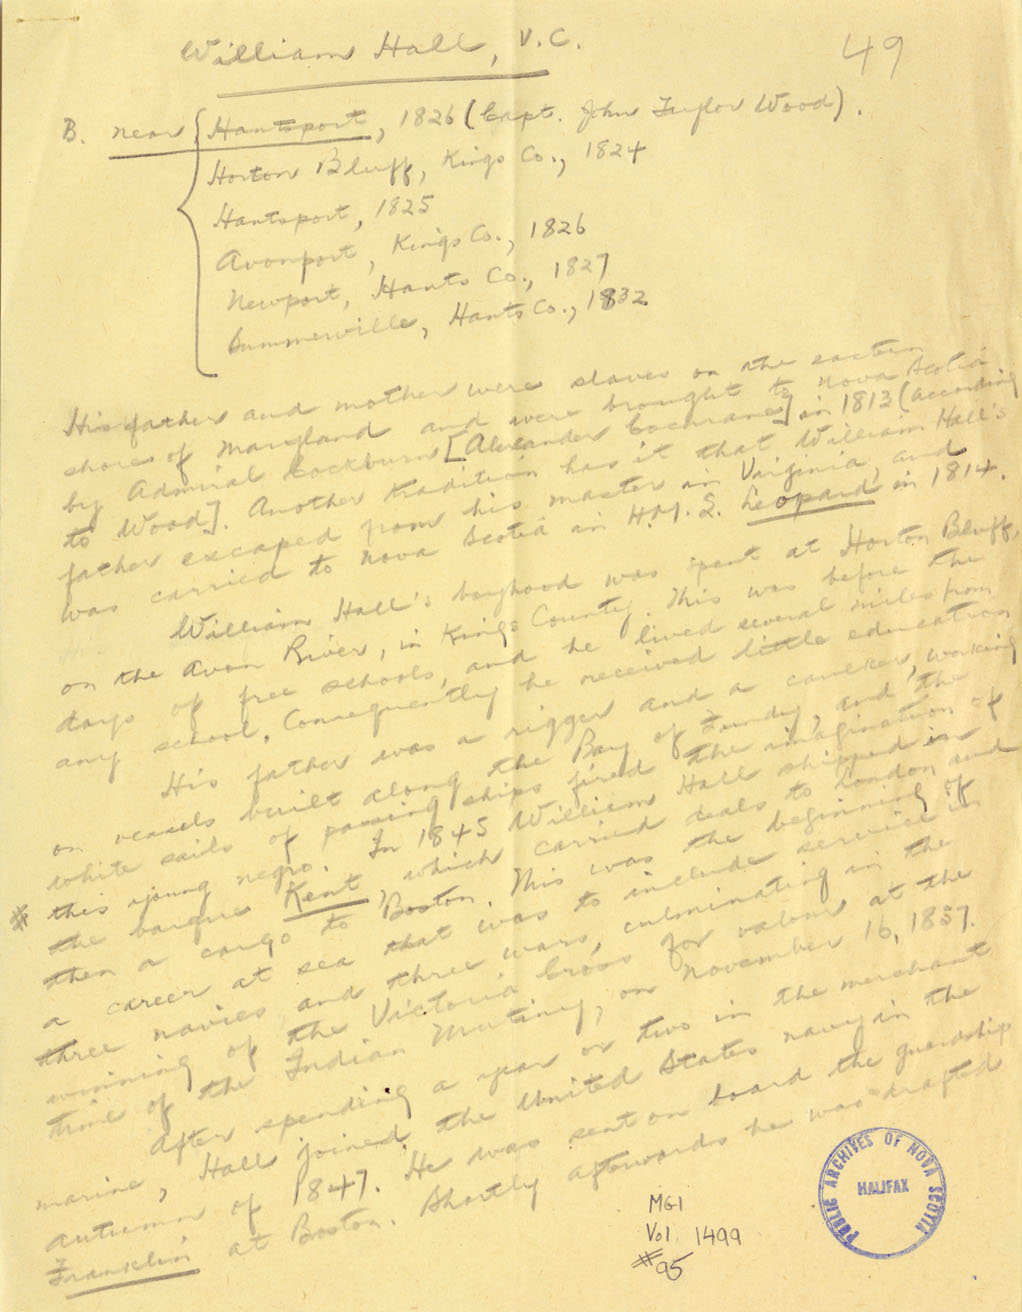 William Hall, V.C.
49
B. near Hantsport, 1826 (Capt. John Taylor Wood).
Horton Bluff, Kings Co., 1824
Hantsport, 1825
Avonport, Kings Co., 1826
Newport, Hants Co., 1827
Summerville, Hants Co., 1832
His father and mother were slaves on the eastern
shore of Maryland and were brought to Nova Scotia
by Admiral Cockburn [Alexander Cochrane] in 1813 (according
to Wood]. Another tradition has it that William Hall's
father escaped from his master in Virginia, and
was carried to Nova Scotia in H.M.S. Leopard in 1814.
William Hall's boyhood was spent at Horton Bluff,
on the Avon River, in Kings County. This was before the
days of free schools, and he lived several miles from
any school. Consequently he received little education
His father was a rigger and a caulker, working
on vessels built along the Bay of Fundy, and the
white sails of passing ships fired the imagination of
# this young negro. In 1845 William Hall shipped in
the barque Kent, which carried deals to London and
then a cargo to Boston. This was the beginning of
a career at sea that was to include service in
three navies and three wars, culminating in the
winning of the Victoria Cross for valour at the
time of the Indian Mutiny, on November 16, 1857.
After spending a year or two in the merchant
marine, Hall joined the United States navy in the
autumn of 1847. He was sent on board the guardship
Franklin at Boston. Shortly afterwards he was drafted
MG1
Vol. 1499
#95
PUBLIC ARCHIVES OF NOVA SCOTIA
HALIFAX